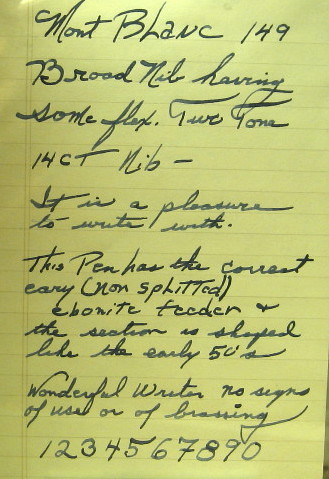 Mont Blanc 149
Broad Nib having
some flex. Two Tone
14CT Nib -
It is a pleasure
to write with.
This Pen has the correct
eary (non splitted)
ebonite feeder &
the section is shaped
like the early 50's
Wonderful Writer no signs
of use or of brassing
1234567890